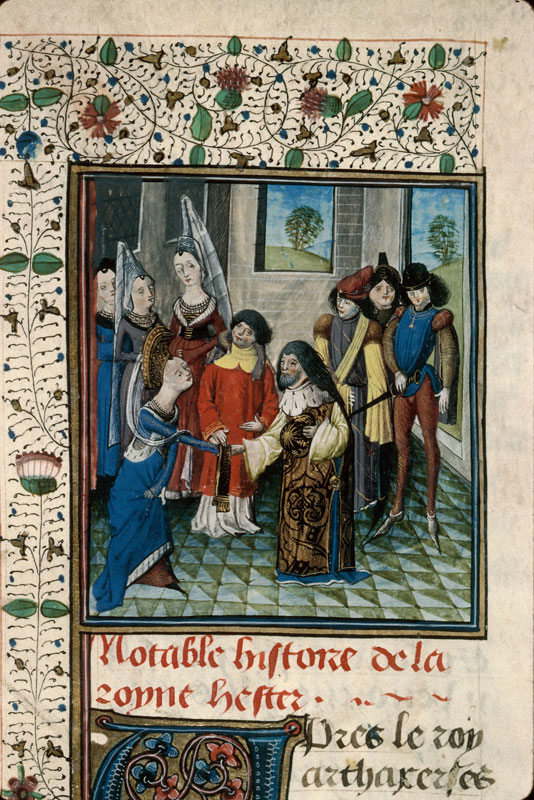 Notable histoire de la
royne hester.
Apres le roy
arthaxerses